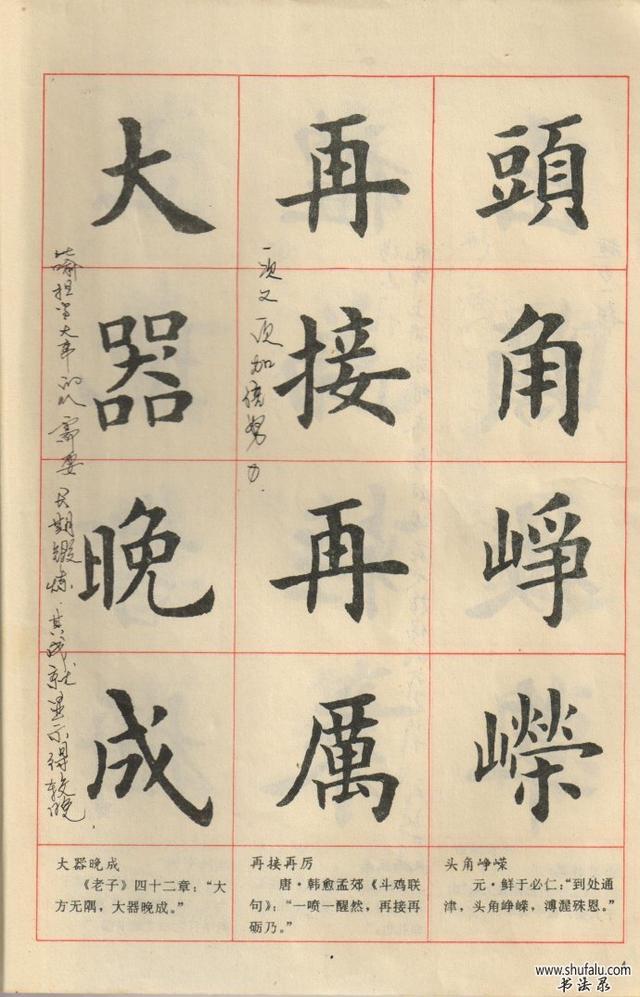 頭角崢嶸
再接再厲
大器晚成
一次又一次加倍努力.
比喻担当大事的人需要长期锻炼.其成就显示得较晚
大器晚成
《老子》四十二章：“大
方无隅，大器晚成。”
再接再厉
唐·韩愈孟郊《斗鸡联
句》：“一喷一醒然，再接再
砺乃。”
头角峥嵘
元·鲜于必仁：“到处通
津，头角峥嵘，溥渥殊恩。”
4
www.shufalu.com
书法录